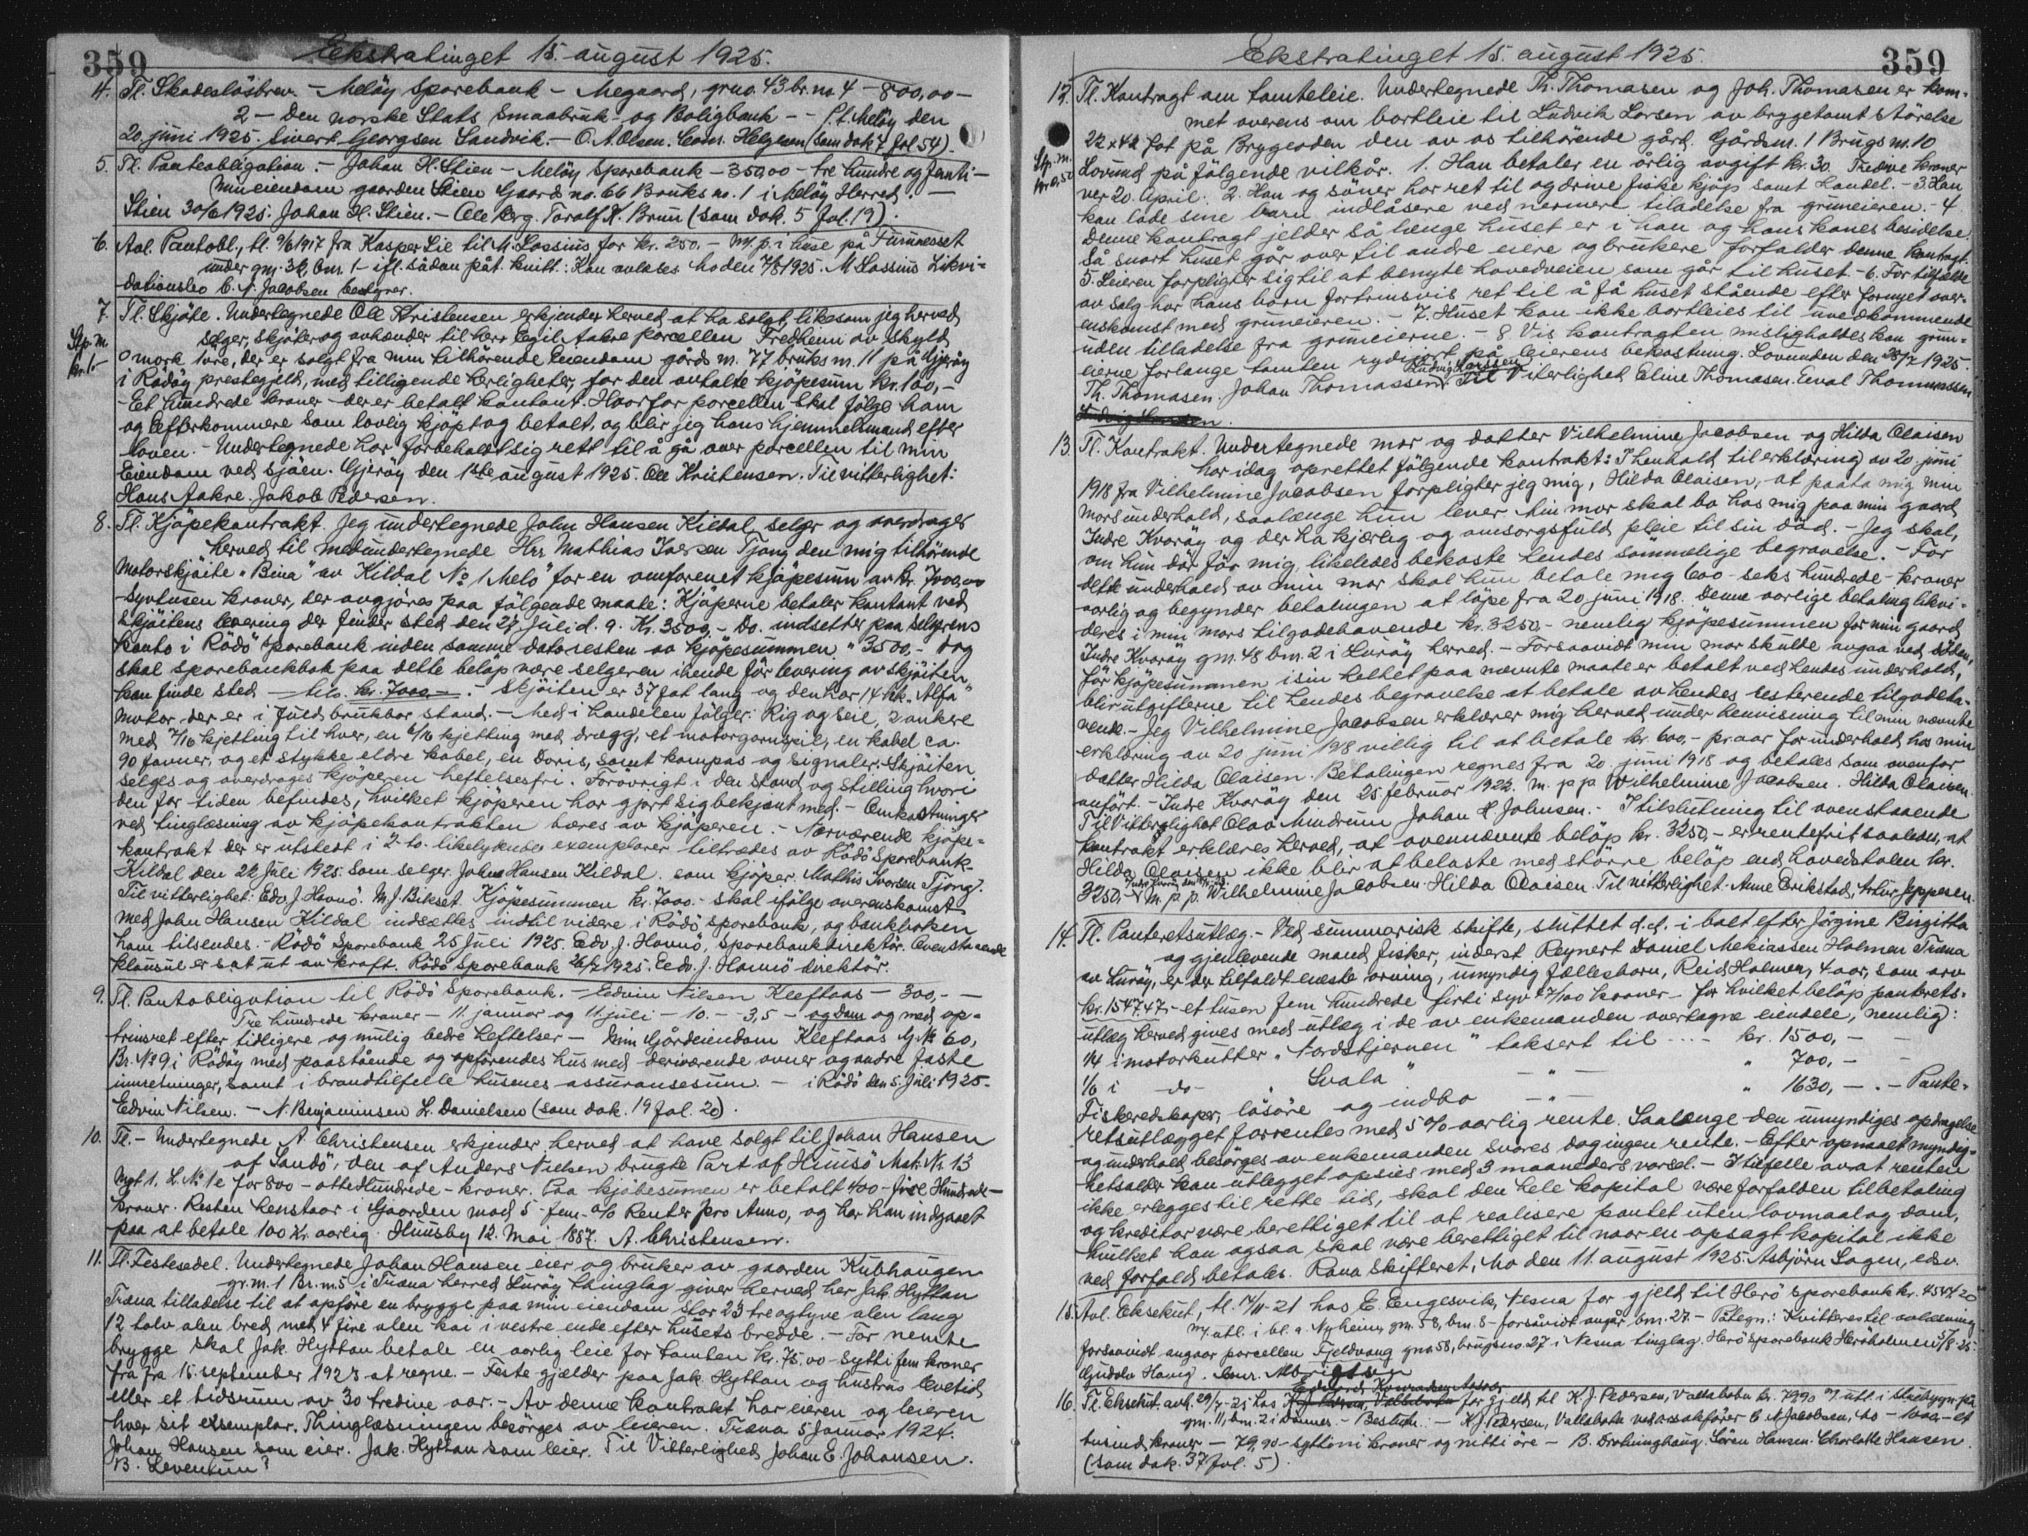 359
Ekstratinget 15. august 1925.
4. Tl. Skadeslösbrev. - Melöy Sparebank - Megaard, gr.no. 43 br.no. 4 - 800,00 -
2 - Den norske Stats Smaabruk- og Boligbank - - P.t. Melöy den
20. juni 1925. Sivert Georgsen Sandvik. - O. A. Olsen. Conr. Helgesen (Som dok 7 fol 54).
5. Tl. Panteobligation. - Johan H. Stien - Melöy Sparebank - 350,00 - tre hundre og femti -
min eiendom gaarden Stien Gaards no. 66 Bruks no. 1 i Melöy Herred. -
Stien 30/6 1925. Johan H. Stien. - Ole Berg. Toralf K. Bruu (som dok. 5 fol. 19).
6. Avl. Pantobl., tl. 9/6 1917 fra Kasper Lie til M. Lossius for kr. 250. - m. p. i huse på Furunesset
under gnr. 34, bnr. 1 - ifl. sådan påt. kvitt: Kan avlæses Mo den 7/8 1925. M Lossius Likvi-
dationsbo C. N. Jacobsen bestyrer.
7. Tl. Skjöte. Undertegnede Ole Kristensen erkjender herved at ha solgt, likesom jeg herved
Stp. m.
kr. 1.-
selger, skjöter og avhænder til herr Egil Aakre parcellen Fredheim av skyld
0 mark 1 øre, der er solgt fra min tilhörende Eiendom gårds nr. 77 bruks nr. 11 på Gjeröy
i Rödöy prestegjeld, med tilligende herligheter, for den avtalte kjöpesum kr. 100,-
- Et hundrede kroner - der er betalt kontant. Hvorfor porcellen skal fölge ham
og Efterkommere som lovlig kjöpt og betalt, og blir jeg hans hjemmelsmand efter
loven. - Undertegnede har forbeholdt sig rett til å gå over porcellen til min
Eiendom ved sjöen. Gjeröy den 1ste august 1925. Ole Kristensen. Til vitterlighet:
Hans Aakre. Jakob Pedersen.
8. Tl. Kjöpekontrakt. Jeg undertegnede John Hansen Kildal selger og overdrager
herved til medundertegnede Hrr. Mathias Iversen Tjong den mig tilhörende
Motorskjöite "Bina" av Kildal No 1 Melö" for en omforenet kjöpesum av kr. 7000,00
syvtusen kroner, der avgjöres paa fölgende maate: Kjöperne betaler kontant ved
Skjöitens levering der finder sted den 27 juli d. a. Kr. 3500,- Do. indsetter paa selgerens
konto i Rödö sparebank inden samme dato resten av kjöpesummen " 3500,- og
skal sparebankbok paa dette belöp være selgeren ihende för levering av skjöiten
kan finde sted - tils. kr. 7000 -. - Skjöiten er 37 fot lang og den har 14 hk. "Alfa"
motor, der er i fuld brukbar stand. - Med i handelen fölger: Rig og seil, 2 ankre
med 7/16 kjetting til hver, en 6/16 kjetting med drægg, et motorgarnspil, en kabel ca.
90 favner, og et stykke eldre kabel, en Doris, samt kompas og signaler. Skjöiten
selges og overdrages kjöperen heftelsesfri. Forövrigt i den stand og stilling hvori
den for tiden befindes, hvilket kjöperen har gjort sig bekjent med. - Omkostninger
ved tinglæsning av kjöpekontrakten bæres av kjöperen. - Nærværende kjöpe-
kontrakt der er utstedt i 2-to. likelydende exemplarer tiltrædes av Rödö Sparebank -
Kildal den 24 Juli 1925. Som selger. John Hansen Kildal. som kjöper. Mathis Iversen Tjong.
Til vitterlighet. Edv J. Hornö. M. J. Bikset. Kjöpesummen kr. 7000.- skal ifölge overenskomst
med John Hansen Kildal indsættes indtil videre i Rödö Sparebank, og bankboken
ham tilsendes. - Rödö Sparebank 25 juli 1925. Edv. J. Hornö, Sparebankdirektör. Ovenstaaende
klausul er sat ut av kraft. Rödö Sparebank 26/7 1925. Edv. J. Hornö direktör.
9. Tl. Pantobligation til Rödö Sparebank. - Edvin Nilsen Kleftaas - 300,- -
Tre hundrede kroner - 11. januar og 11 juli - 10. - 3,5 - og dam og med op-
trinsret efter tidligere og mulig bedre heftelser - Min Gårdeiendom Kleftaas G. No 60,
Br. No 9 i Rödöy med paastående og opförendes hus med derværende ovner og andre faste
innretninger, samt i brandtilfelle husenes assuransesum. - i Rödö den 5. Juli 1925 -
Edvin Nilsen. - N. Benjaminsen L. Danielsen (som dok. 19 fol. 20).
10. Tl. - Undertegnede A Christensen erkjender herved at have solgt til Johan Hansen
af Sandö, den af Anders Nielsen brugte Part af Huusö Mat. Nr. 13
Mgt 1. L. No 1e for 800 - ottehundrede - kroner. Paa kjöbesumen er betalt 400 - fire Hundrede -
kroner. Resten henstaar i Gaarden mod 5 - fem - % Renter pro Anno, og har han indgaaet
paa at betale 100 Kr. aarlig. Huusby 12. Mai 1887. A. Christensen.
11. Tl. Festesedel. Undertegnede Johan Hansen eier og bruker av gaarden Kubhaugen
gr. nr. 1 Br. nr. 5 i Træna herred Luröy thinglag giver herved her Jak. Hyttan
Træna tilladelse til at opföre en brygge paa min eiendom stor 23 treogtyve alen lang
12 tolv alen bred med 4 fire alen kai i vestre ende efter husets bredde. - For nemte
brygge skal Jak. Hyttan betale en aarlig leie for tomten kr. 75,00 - sytti fem kroner
fra fra 15. september 1923 at regne. - Feste gjælder paa Jak. Hyttan og hustrus levetid
eller et tidsrum av 30 tredive aar. - Av denne kontrakt har eieren og leieren
hver sit exsemplar. Thinglæsningen besörges av leieren. Træna 5 januar 1924.
Johan Hansen som eier. Jak. Hyttan som leier. Til Vitterlighed Johan E. Johansen.
B. Leventun?
359
Ekstratinget 15. august 1925.
12. Tl. Kontragt om tomteleie. Undertegnede Th. Thomasen og Joh. Thomasen er kom-
met overens om bortleie til Ludvik Larsen av bryggetomt störelse
Stp. m.
kr. 0,50
22 x 42 fot på Brygeoden den av os tilhörende gård. Gårdsnr. 1 Brugs nr 10
Lovund på fölgende vilkår. 1. Han betaler en årlig avgift kr. 30. Tredive kroner
ver 20 April. 2. Han og söner har ret til og drive fiske kjöp samt handel. - 3 Han
kan lade sine barn indlåsere ved nærmere tiladelse fra gruneieren. - 4
Denne kontragt jelder så længe huset er i han og hans kones besidelse.
Så snart huset går over til andre eiere og brukere forfalder denne kontragt.
5. Leieren forpligter sig til at benyte hovedveien som går til huset. - 6. For tilfælle
av salg har hans börn fortrinsvis ret til å få huset stående efter fornyet over-
enskomst med gruneieren. - 7. Huset kan ikke bortleies til uvedkommende
uden tilladelse fra gruneierne - 8 Vis kontragten misligholdes kan grun-
eierne forlange tomten rydiggjort på leierens bekostning. Lovunden den 28/7 1925.
Ludvig Larssen
Th. Thomasen. Johan Thomassen. Til Viterlighed Eline Thomasen. Enval Thomassen
13. Tl. Kontrakt. Undertegnede mor og datter Vilhelmine Jacobsen og Hilda Olaisen
har idag oprettet fölgende kontrakt: I henhold til erklæring av 20. juni
1918 fra Vilhelmine Jacobsen forpligter jeg mig, Hilda Olaisen, at paata mig min
mors underhold, saalænge hun lever. Min mor skal bo hos mig paa min gaard
Indre Kvaröy og der ha kjærlig og omsorgsfuld pleie til sin död. - Jeg skal,
om hun dör för mig, likeledes bekoste hendes sömmelige begravelse. - For
dette underhold av min mor skal hun betale mig 600 - seks hundrede - kroner
aarlig og begynder betalingen at löpe fra 20 juni 1918. Denne aarlige betaling likvi-
deres i min mors tilgodehavende kr. 3250,- nemlig kjöpesummen for min gaard
Indre Kvaröy gnr. 48 bnr. 2 i Luröy herred. - Forsaavidt min mor skulde avgaa ved döden,
för kjöpesummen i sin helhet paa nævnte maate er betalt ved hendes underhold,
blir utgifterne til hendes begravelse at betale av hendes resterende tilgodeha-
vende. - Jeg Vilhelmine Jacobsen erklærer mig herved under henvisning til min nævnte
erklæring av 20 juni 1918 villig til at betale kr. 600,- pr. aar for underhold hos min
datter Hilda Olaisen. Betalingen regnes fra 20. juni 1918 og betales som ovenfor
anfört. - Indre Kvaröy den 25 februar 1922. m. p. p. Wilhelmine Jacobsen. Hilda Olaisen
Til Vitterlighet Olav Mindrum Johan H. Johnsen. - I tilslutning til ovenstaaende
kontrakt erklæres herved, at ovennævnte belöp kr. 3250,- er rentefrit saaledes, at
Hilda Olaisen ikke blir at belaste med större belöp end hovedstolen kr.
3250,- m. p. p. Wilhelmine Jacobsen. Hilda Olaisen. Til vitterlighet. Anne Erikstad, Artur Jeppesen.
14. Tl. Panteretsutlæg. - Ved summarisk skifte, sluttet d. d. i boet efter Jörgine Birgitta
og gjenlevende mand fisker, inderst Reynert Daniel Mekiassen Holmen Træna
av Luröy, er der tilfaldt eneste arving, umyndig fællesbarn, Reid Holmen, 4 aar, som arv
kr. 1547.47 - et tusen fem hundrede firti syv 47/100 kroner - for hvilket belöp panterets-
utlæg herved gives med utlæg i de av enkemanden overtagne eiendele, nemlig:
1/4 i motorkutter "Nordstjernen" taksert til .... kr. 1500,- -
1/6 i -do- "Svala" - " - " 700,- -
Fiskeredskaper, lösöre og indbo - " - " 1630,- . - Pante-
retsutlægget forrentes med 5 % aarlig rente. Saalænge den umyndiges opdragelse
og underhold besörges av enkemanden svares dog ingen rente. - Efter opnaaet myndig-
hetsalder kan utlegget opsies med 3 maaneders varsel. - I tilfelle av at renten
ikke erlegges til rette tid, skal den hele kapital være forfalden til betaling
og kreditor være berettiget til at realisere pantet uten lovmaal og dom,
hvilket han ogsaa skal være berettiget til naar en opsagt kapital ikke
ved forfald betales. Rana Skifteret, Mo den 11. august 1925. Asbjörn Lagen, edsv.
15. Avl. Eksekut., tl. 14/11-21 hos E. Engesvik, Nesna for gjeld til Herö Sparebank kr. 4544.20
m/ utl. i bl. a. Nyheim, gnr. 58, bnr. 8 - forsåvidt angår bnr. 27. - Påtegn.: Kvitteres til avlæsning
forsaavidt angaar parcellen Fjeldvang gno 58, brugsno. 27 i Nesna tinglag. Herö Sparebank Herøholmen 5/8-25.
16. Tl. Eksekut. avh. 29/7-25 hos for gjeld til K. J. Pedersen, Vallabotn kr. 79,90 m/ utl. i
gnr. 11, bnr. 2 i Dönnes - Beslutn: - K. J. Pedersen, Vallabotn ved o.r.sakförer C. N. Jacobsen, Mo - 1000,- et
tusind kroner - 79,90 - syttini kroner og nitti öre - B. Dronninghaug. Sören Hansen. Charlotte Hansen.
(som dok. 37 fol. 5).